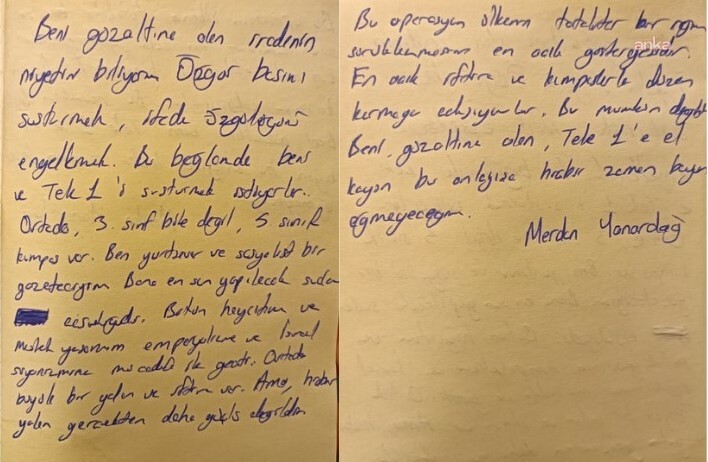 Beni gözaltına alan iradenin
niyetini biliyorum Özgür basını
susturmak, ifade özgürlüğünü
engellemek. Bu bağlamda beni
ve Tele 1'i susturmak istiyorlar.
Ortada, 3. sınıf bile değil, 5. sınıf
kumpas var. Ben yurtsever ve sosyalist bir
gazeteciyim Bana en son yapılacak suçlama
casusluktur. Bütün hayatım ve
meslek yaşamım emperyalizme ve İsrail
siyonizmine mücadele ile geçti. Ortada
büyük bir yalan ve iftira var. Ama, hiçbir
yalan gerçekten daha güçlü değildir.
Bu operasyon ülkenin totaliter bir rejime
sürüklenmesinin en açık göstergesidir.
anka
En açık iftira ve kumpaslarla düzen
kurmaya çalışıyorlar. Bu mümkün değil
Beni gözaltına alan, Tele 1'e el
koyan bu anlayışa hiçbir zaman boyun
eğmeyeceğim.
Merdan Yanardağ